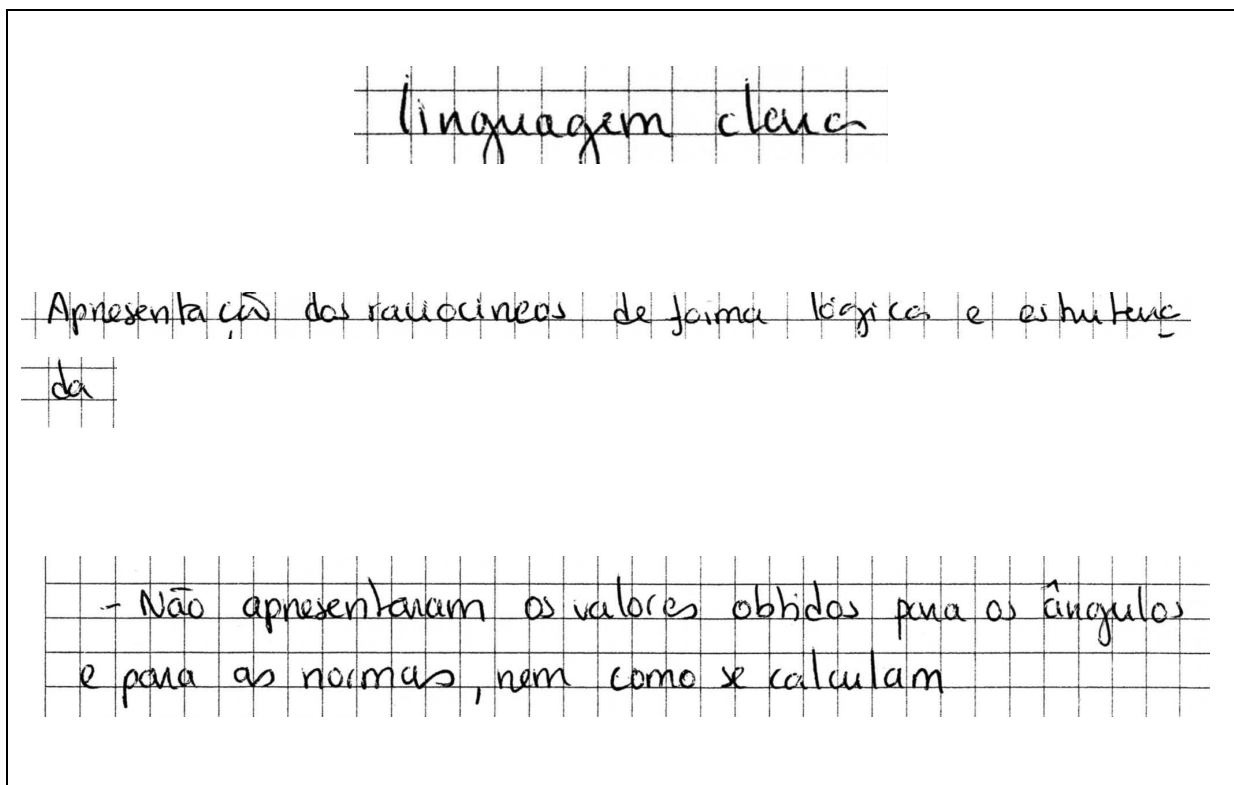 linguagem clara
Apresentação dos raciocineos de forma lógica e estrutura
da
- Não apresentaram os valores obtidos para os ângulos
e para as normas, nem como se calculam